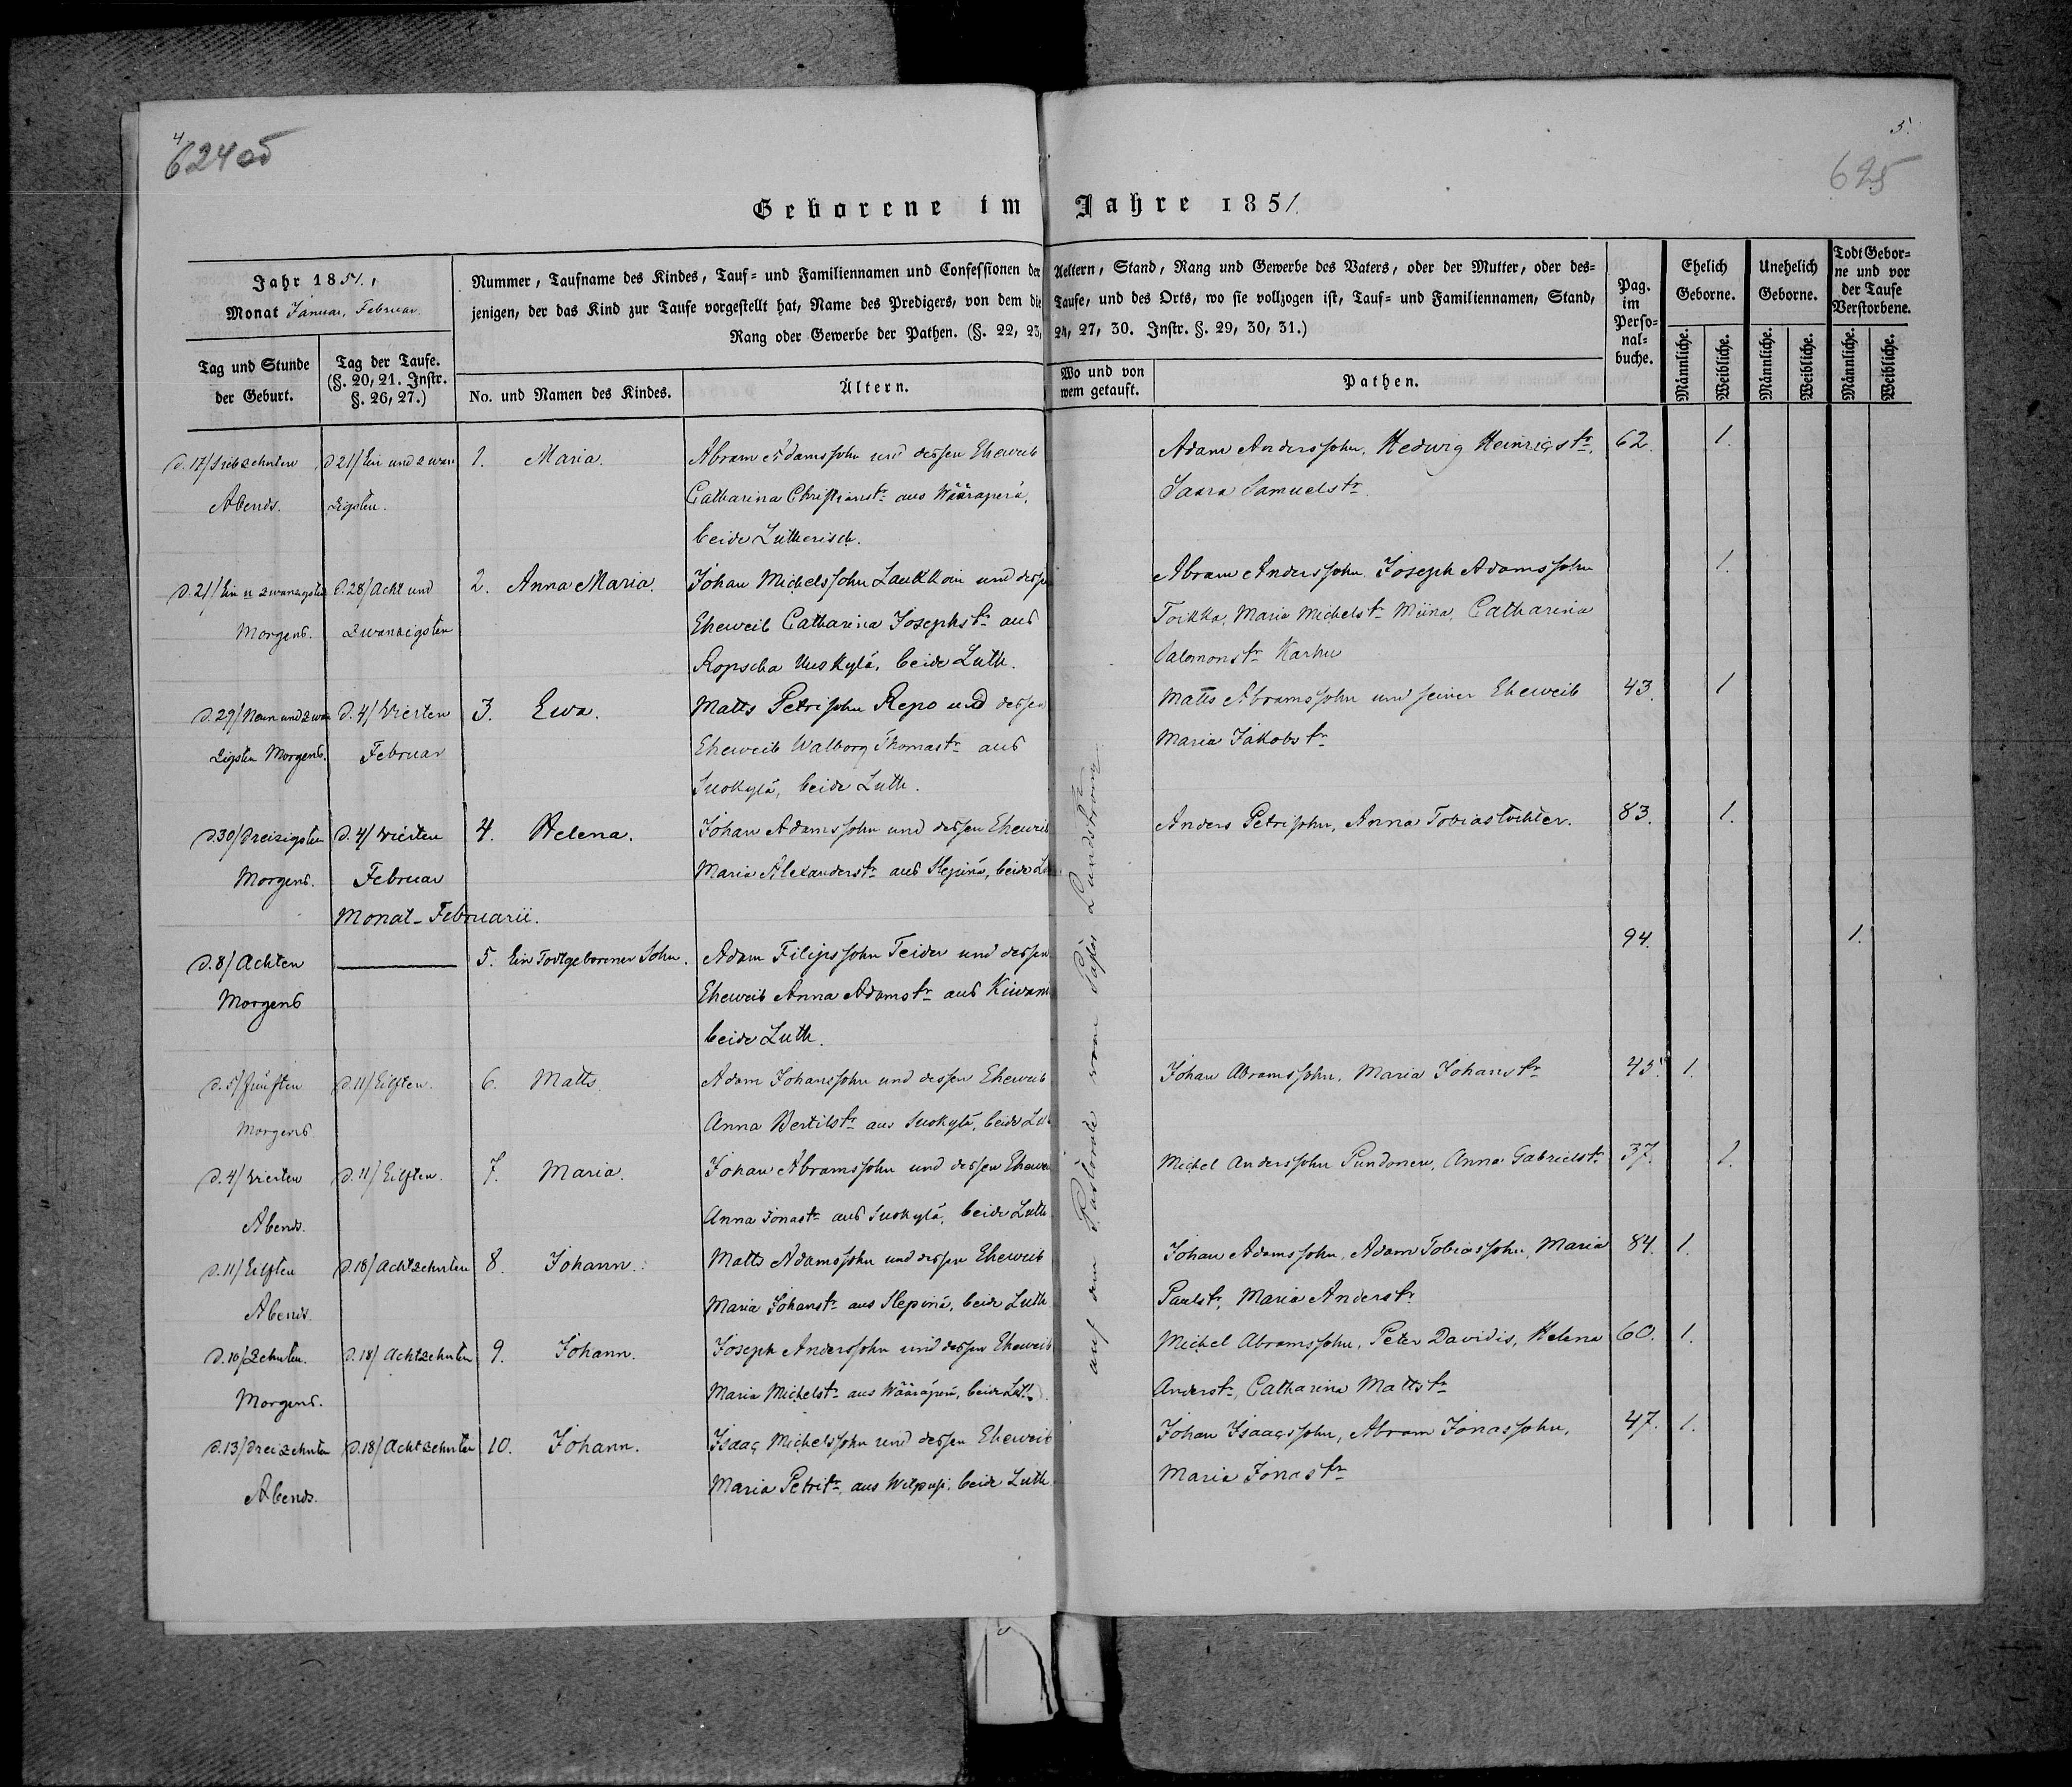 4
624 об
5.
625
Geborene im Jahre 1851.
Jahr 1851.,
Monat Januar, Februar.
Nummer, Taufname des Kindes, Tauf- und Familiennamen und Confessionen der Aeltern, Stand, Rang und Gewerbe des Vaters, oder der Mutter, oder des-
jenigen, der das Kind zur Taufe vorgestellt hat, Name des Predigers, von dem die Taufe, und des Orts, wo sie vollzogen ist, Tauf- und Familiennamen, Stand,
Rang oder Gewerbe der Pathen. (§. 22, 23, 24, 27, 30. Instr. §. 29, 30, 31.)
Pag. im Perso- nal- buche.
Ehelich Geborne.
Unehelich Geborne.
Todt Gebor- ne und vor der Taufe Verstorbene.
Tag und Stunde der Geburt.
Tag der Taufe. (§. 20, 21. Instr. §. 26, 27.)
No. und Namen des Kindes.
Ältern.
Wo und von wem getauft.
Pathen.
Männliche. Weibliche. Männliche. Weibliche. Männliche. Weibliche.
d. 17/ Siebzehnten d 21/ Ein und zwan 1. Maria. Abram Adamssohn und dessen Eheweib Adam Anderssohn, Hedwig Heinrigstr. 62. 1.
Abends. zigsten. Catharina Christianstr aus Wääräperä, Saara Samuelstr.
beide Lutherisch.
d. 21/ Ein u zwanzigsten d. 28/ Acht und 2. Anna Maria. Johan Michelssohn Laukkain und dessen Abram Anderssohn, Joseph Adamssohn 1.
Morgens. Zwanzigsten Eheweib Catharina Josephstr aus Toikka, Maria Michelstr Miina, Catharina
Ropscha Uuskylä, beide Luth. Salomonstr Karhu
d. 29/ Neun und zwan d. 4/ Vierten 3. Ewa. Matts Petrisohn Repo und dessen Matts Abramssohn und seiner Eheweib 43. 1
zigsten Morgens. Februar Eheweib Walborg Thomastr aus Maria Jakobstr
Suokylä, beide Luth.
d. 30/ Dreizigsten d. 4/ Vierten 4. Helena. Johan Adamssohn und dessen Eheweib Anders Petrisohn, Anna Tobiastochter. 83. 1.
Morgens. Februar Maria Alexanderstr aus Slepinä, beide
Monat Februarii.
d. 8/ Achten 5. Ein Todtgeborener Sohn. Adam Filipssohn Teider und dessen 94. 1.
Morgens Eheweib Anna Adamstr aus
beide Luth.
d. 5/ Fünften d. 11/ Eilften. 6. Matts. Adam Johanssohn und dessen Eheweib Johan Abramssohn, Maria Johanstr 45. 1.
Morgens Anna Bertilstr aus Suokylä, beide
d. 4/ Vierten d. 11/ Eilften. 7. Maria. Johan Abramssohn und dessen Eheweib Michel Anderssohn Pundonen, Anna Gabrielstr 37. 1.
Abends. Anna Jonastr aus Suokylä, beide Luth.
d. 11/ Eilften d. 18/ Achtzehnten 8. Johann. Matts Adamssohn und dessen Eheweib Johan Adamssohn, Adam Tobiassohn, Maria 84. 1.
Abends. Maria Johanstr aus Slepinä, beide Luth. Paulstr, Maria Anderstr
d. 10/ Zehnten. d. 18/ Achtzehnten 9. Johann. Joseph Anderssohn und dessen Eheweib Michel Abramssohn, Peter Davidis, Helena 60. 1.
Morgens. Maria Michelstr aus Wääräperä, beide Luth. Anderstr, Catharina Mattstr
d. 13/ Dreizehnten d. 18/ Achtzehnten 10. Johann. Isaac Michelssohn und dessen Eheweib Johan Isaacssohn, Abram Jonassohn, 47. 1.
Abends. Maria Petritr, aus Wilpusi, beide Luth. Maria Jonastr
auf dem Pastorate vom Pastor Lundström